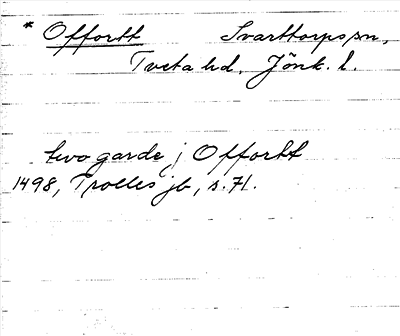 * Offortt Svarttorps sn,
Tveta hd. Jönk. l.
two garde j Offortt
1498, Trolles jb, s. 71.